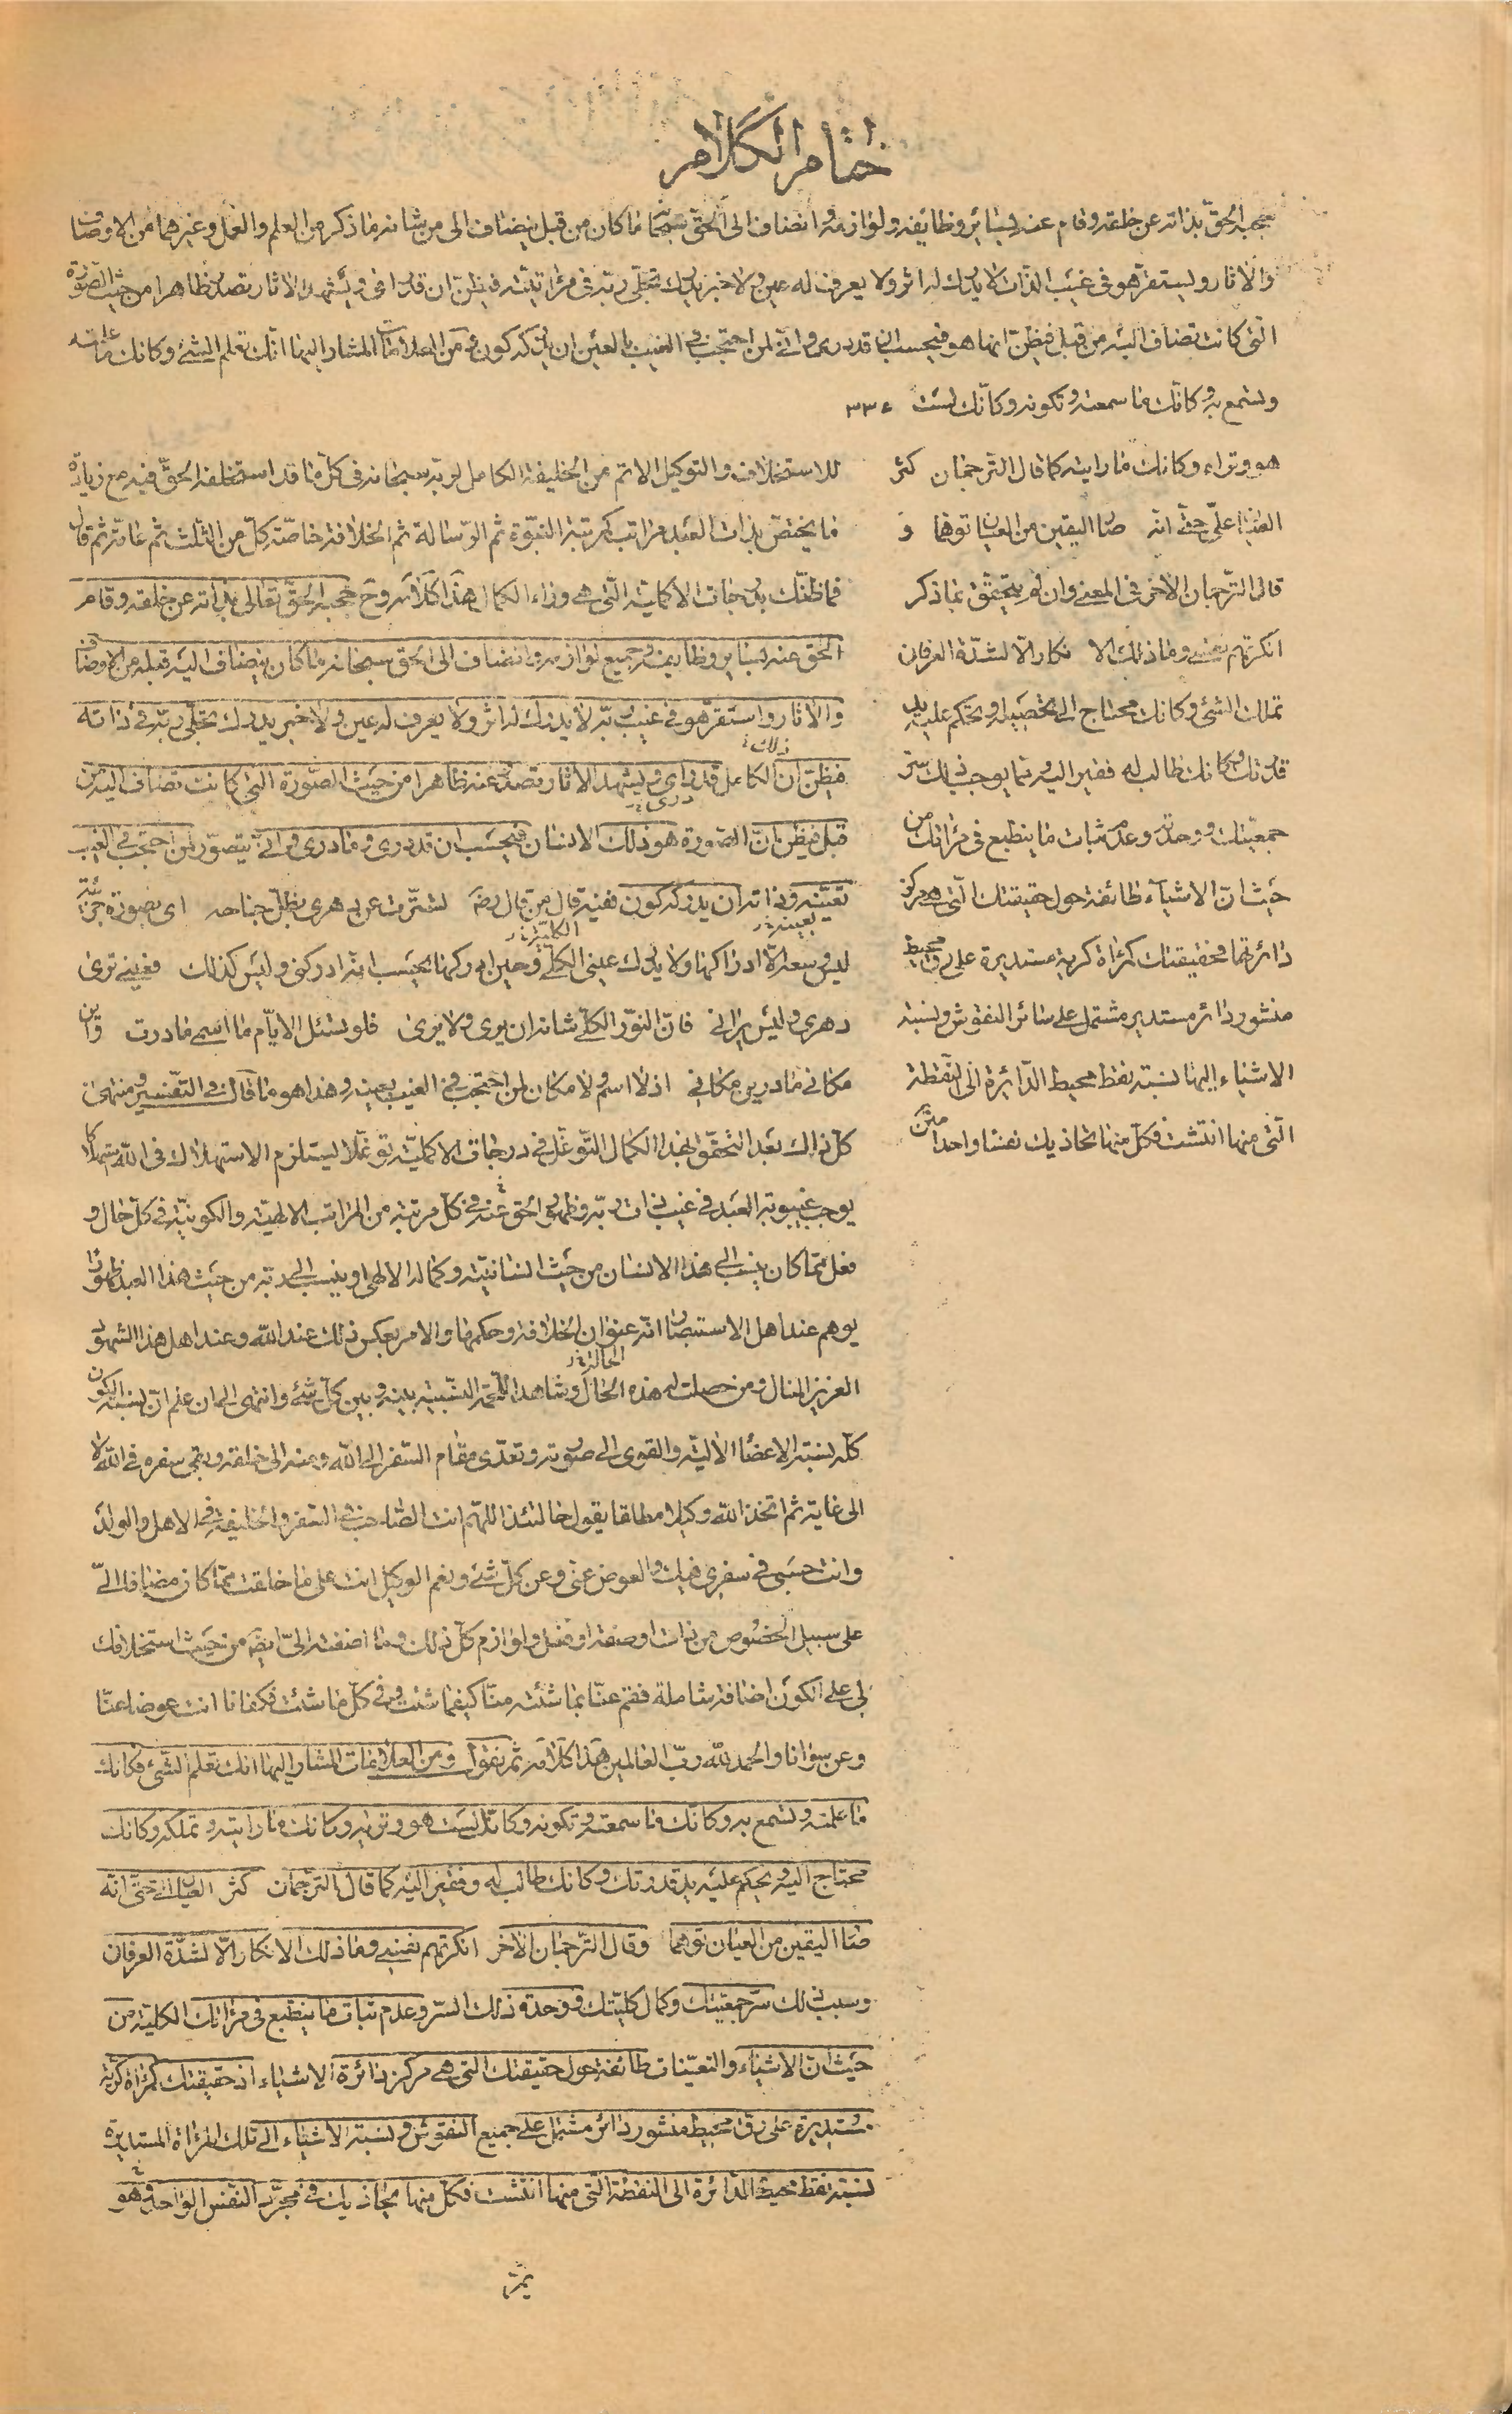 ختام الكلام
حجبه الحق بذاته عن خلقه وقام عنه بسائر وظائفه ولوازمه وانضاف الى الحق سبحانه ما كان من قبل ينضاف الى من شانه ما ذكر من العلم والعمل وغيرهما من الاوصاف
والاثار ويستقر هو في غيب الذات لا يدرك له اثر ولا يعرف له عين ولا خبر يدرك تجلى ربه في مرآتيته فيظن ان قد راى ويشهد الاثار تصدر ظاهرا من حيث الصورة
التي كانت تضاف اليه من قبل فيظن انها هو فيحسب ان قد درى وانى لمن احتجب في الغيب بالعين ان يدركه كون ومن العلامات المشار اليها انك تعلم الشئ وكانك ما علمته
وتسمع به وكانك ما سمعته وتكونه وكانك لست
هو وتراه وكانك ما رايته كما قال الترجمان كثر
العيان على حتى انه صار اليقين من العيان توهما و
قال الترجمان الاخر في المعنى وان لم يتحقق بما ذكر
انكرتهم نفسي وما ذلك الا نكار الا لشدة العرفان
تملك الشئ وكانك محتاج الى تحصيله ويحكم عليه يد
قدرتك وكانك طالب له فقير اليه وبما يوجب ذلك سر
جمعيتك ووحدته وعدم ثبات ما ينطبع في مرآتك من
حيث ان الاشياء طائفة حول حقيقتك التي هي مركز
دائرتها فحقيقتك كمرآة كرية مستديرة على رق محيط
منشور دائر مستدير مشتمل على سائر النقوش ونسبة
الاشياء اليها نسبة نقط محيط الدائرة الى النقطة
التي منها انتشت فكل منها تحاذيك نفسا واحدا متن
للاستخلاف والتوكيل الاتم من الخليفة الكامل لربه سبحانه في كل ما قد استخلفه الحق فيه مع زيادة
ما يختص بذات العبد مراتب كمرتبة النبوة ثم الرسالة ثم الخلافة خاصة كل من الثلث ثم عامة ثم قال
فما ظنك بدرجات الاكملية التي هي وراء الكمال هذا كلامه وح حجبه الحق تعالى بذاته عن خلقه وقام
الحق عنه بسائر وظايفه وجميع لوازمه وانضاف الى الحق سبحانه ما كان ينضاف اليه قبله من الاوصاف
والاثار واستقر هو في غيب ربه لا يدرك له اثر ولا يعرف له عين ولا خبر يدرك تجلى ربه في ذاته
ذلك
فيظن ان الكامل قد راى ويشهد الاثار تصدر عنه ظاهرا من حيث الصورة التي كانت تضاف اليه من
قبل فيظن ان الصورة هو ذلك الانسان فيحسب ان قد درى وما درى وانى يتصور لمن احتجب في الغيب
تعينه وذاته ان يدركه كون ففيه قال من قال رضه تسترت عن دهري بظل جناحه اى بصورة جزئية
بعينه
ليدي وسعه الا ادراكها ولا يدرك عيني الكلي وحين ادركها يحسب انه ادركني وليس كذلك فعيني ترى
دهري وليس يراني فان النور الكلي شانه ان يرى ولا يرى فلو تسئل الايام ما اسمي ما درت واين
مكاني ما درين مكاني اذ لا اسم ولا مكان لمن احتجب في الغيب بعينه وهذا هو ما قال في التفسير ومنتهى
كل ذلك بعد التحقق بهذا الكمال التوغل في درجات الاكملية توغلا يستلزم الاستهلاك في الله استهلاكا
يوجب غيبوبة العبد في غيب ذات ربه وظهور الحق عنه في كل مرتبة من المراتب الالهية والكونية في كل حال و
فعل مما كان ينسب الى هذا الانسان من حيث انسانيته وكماله الالهى او ينسب الى ربه من حيث هذا العبد ظهورا
يوهم عند اهل الاستبصار انه عنوان الخلافة وحكمها والامر بعكس ذلك عند الله وعند اهل هذا الشهود
الحالة
العزيز المنال ومن حصلت له هذه الحال وشاهد اللحمة النسبية بينه وبين كل شئ وانتهى الى ان علم ان نسبة الكون
كله نسبة الاعضاء الالية والقوى الى صورته وتعدى مقام السفر الى الله ومنه الى خلقه وبقى سفره في الله لا
الى غاية ثم اتخذ الله وكيلا مطلقا يقول حالتئذ اللهم انت الصاحب في السفر والخليفة في الاهل والولد
وانت حسبي في سفري فيك والعوض عني وعن كل شئ ونعم الوكيل انت على ما خلفت مما كان مضافا الى
على سبيل الخصوص من ذات او صفة او فعل ولوازم كل ذلك وما اضفته الى ايضه من حيث استخلافك
لي على الكون اضافة شاملة فقم عنا بما شئته منا كيفما شئت وفي كل ما شئت فكفانا انت عوضا عنا
وعن سوانا والحمد لله رب العالمين هذا كلامه ثم نقول ومن العلامات المشار اليها انك تعلم الشئ فكانك
ما علمته وتسمع به وكانك ما سمعته وتكونه وكانك لست هو وتريه وكانك ما رايته وتملكه وكانك
محتاج اليه ويحكم عليه يد قدرتك وكانك طالب له وفقير اليه كما قال الترجمان كثر العيان على حتى انه
صار اليقين من العيان توهما وقال الترجمان الاخر انكرتهم نفسي وما ذلك الانكار الا لشدة العرفان
وسبب ذلك سر جمعيتك وكمال كليتك ووحدة ذلك السر وعدم ثبات ما ينطبع في مرآتك الكلية من
حيث ان الاشياء والتعينات طائفة حول حقيقتك التي هي مركز دائرة الاشياء اذ حقيقتك كمرآة كرية
مستديرة على رق محيط منشور دائر مشتمل على جميع النقوش ونسبة الاشياء الى تلك المرآة المستديرة
نسبة نقط محيط الدائرة الى النقطة التي منها انتشت فكل منها يحاذيك في مجرد النفس الواحد وهو